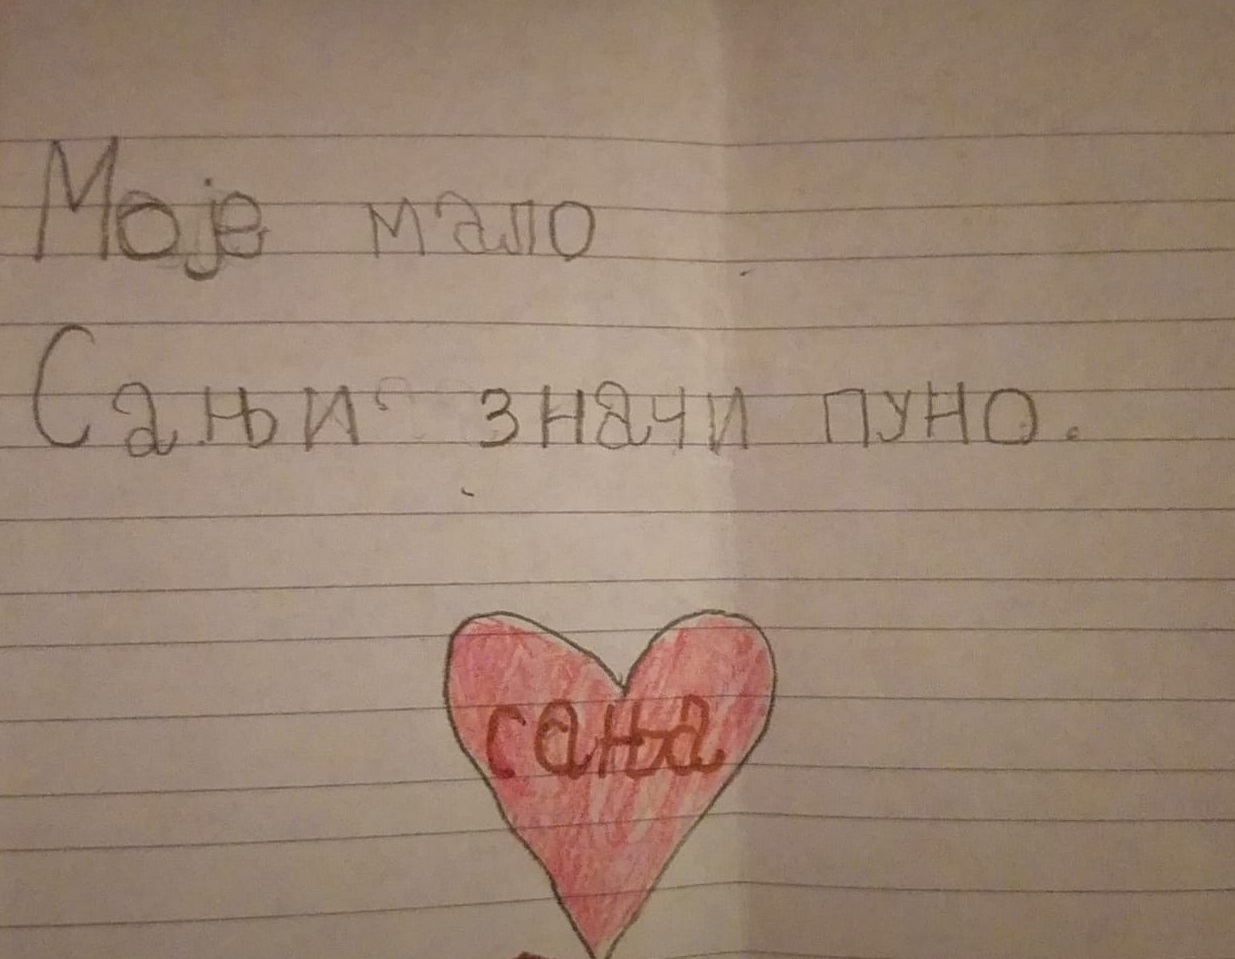 Моје мало
Сањи значи пуно.
сања